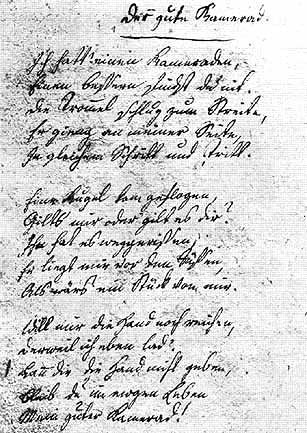 Der gute Kamerad.
Ich hatt' einen Kameraden,
Einen bessern findst du nit.
Die Trommel schlug zum Streite,
Er gieng an meiner Seite,
In gleichem Schritt und Tritt.
Eine Kugel kam geflogen,
Gilts mir oder gilt es dir?
Ihn hat es weggerissen,
Er liegt mir vor den Füßen,
Als wärs ein Stück von mir.
Will mir die Hand noch reichen,
derweil ich eben lad.
Kann dir die Hand nicht geben,
Bleib du im ewgen Leben
Mein guter Kamerad!